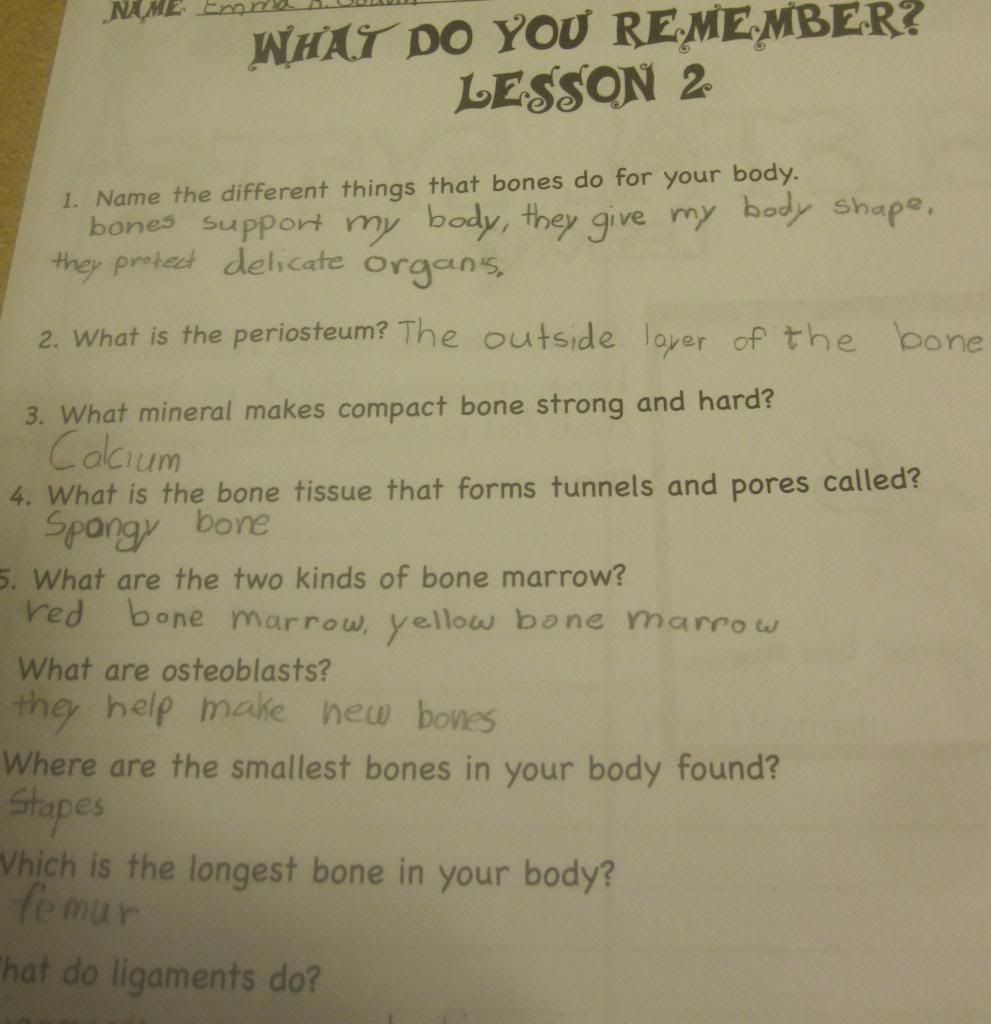 NAME Emma
WHAT DO YOU REMEMBER?
LESSON 2
1. Name the different things that bones do for your body.
bones support my body, they give my body shape,
they protect delicate organs.
2. What is the periosteum? The outside layer of the bone
3. What mineral makes compact bone strong and hard?
Calcium
4. What is the bone tissue that forms tunnels and pores called?
Spongy bone
5. What are the two kinds of bone marrow?
red bone marrow, yellow bone marrow
What are osteoblasts?
they help make new bones
Where are the smallest bones in your body found?
Stapes
Which is the longest bone in your body?
femur
hat do ligaments do?